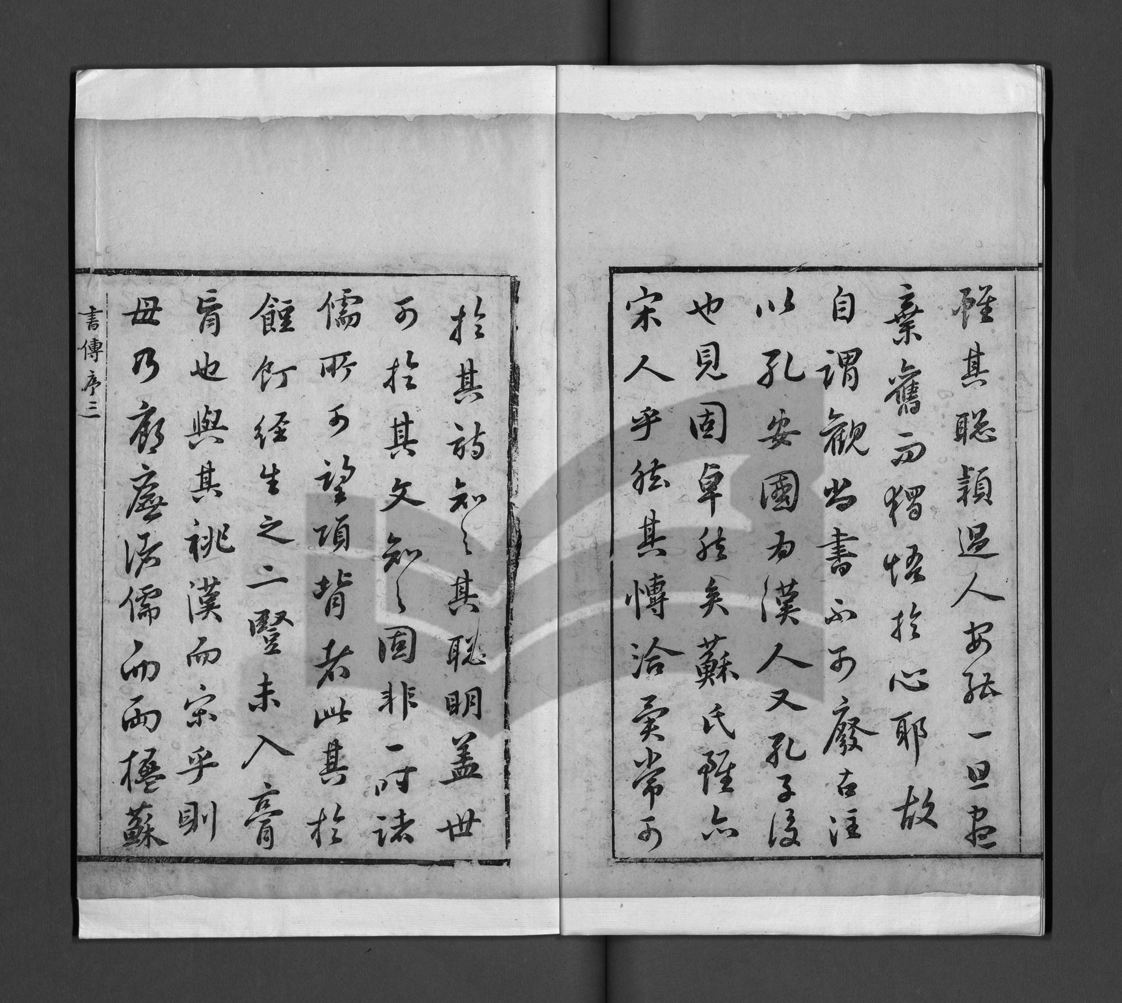 雖其聰穎過人安能一旦盡
棄舊而獨悟於心耶故
自謂觀尚書不可廢古注
以孔安國為漢人又孔子後
也見固卓然矣蘇氏雖亦
宋人乎然其博洽異常可
於其詩知之其聰明蓋世
可於其文知之固非一時諸
儒所可望項背者此其於
餖飣經生之二豎未入膏
肓也與其祧漢而宋乎則
毋乃廊廡漢儒而兩楹蘇
書傳序三